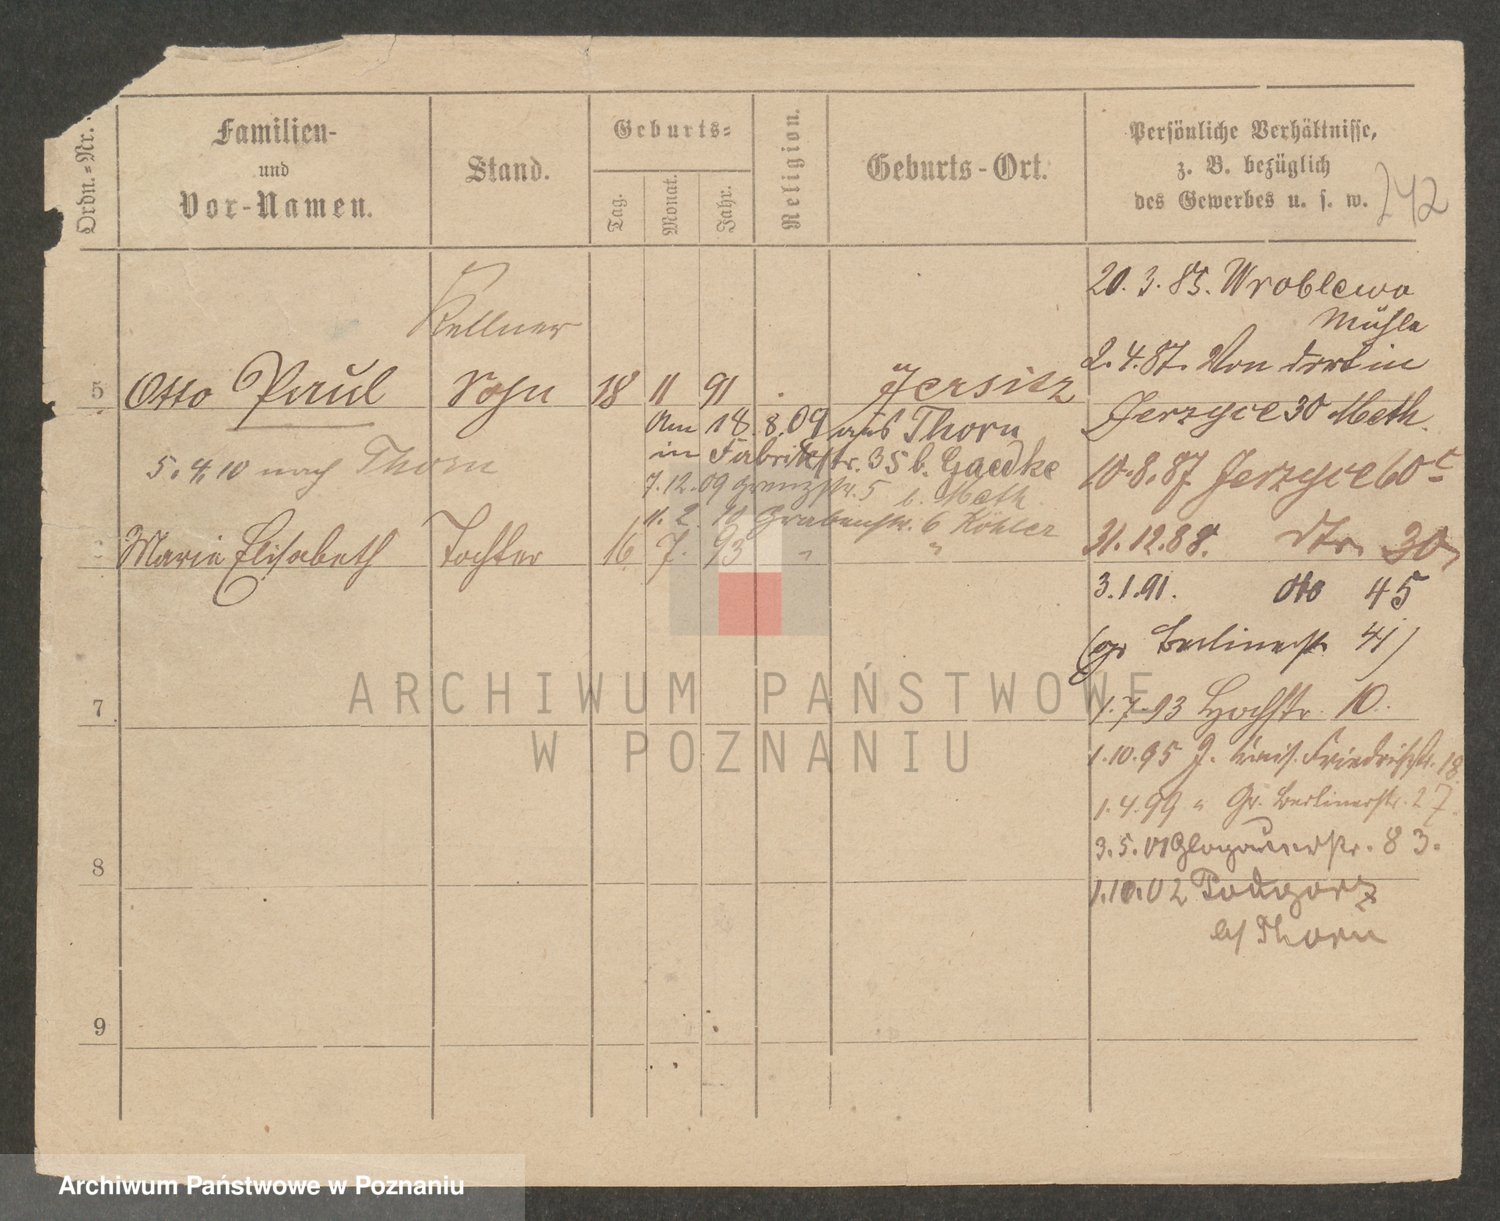 Ordn.-Nr.
Familien-
und
Vor-Namen.
Stand.
Geburts-
Tag.
Monat.
Jahr.
Religion.
Geburts-Ort.
Persönliche Verhältnisse,
z. B. bezüglich
des Gewerbes u. s. w.
242
Kellner
5 Otto Paul Sohn 18 11 91 . Jersitz
Am 18.8.09 aus Thorn
in Fabrikstr. 35 b. Gaedke
5.4.10 nach Thorn
7.12.09 Grenzstr. 5 b. Meth
11.2.10 Grabenstr. 6 Köhler
Marie Elisabeth Tochter 16 7. 93 " "
7
8
9
20.3.85. Wroblewo
Mühle
2.4.87. Von dort in
Jerzyce 30 Meth.
10.8.87 Jerzyce 60c
31.12.88. dto 30
3.1.91. dto 45
(gr Berlinerstr 41)
1.7.93 Hochstr. 10.
1.10.95 J. Kais. Friedrichstr. 18
1.4.99 " Gr. Berlinerstr. 27.
3.5.01 Glogauerstr. 83.
1.10.02 Podgorz
b/ Thorn
ARCHIWUM PAŃSTWOWE
W POZNANIU
Archiwum Państwowe w Poznaniu